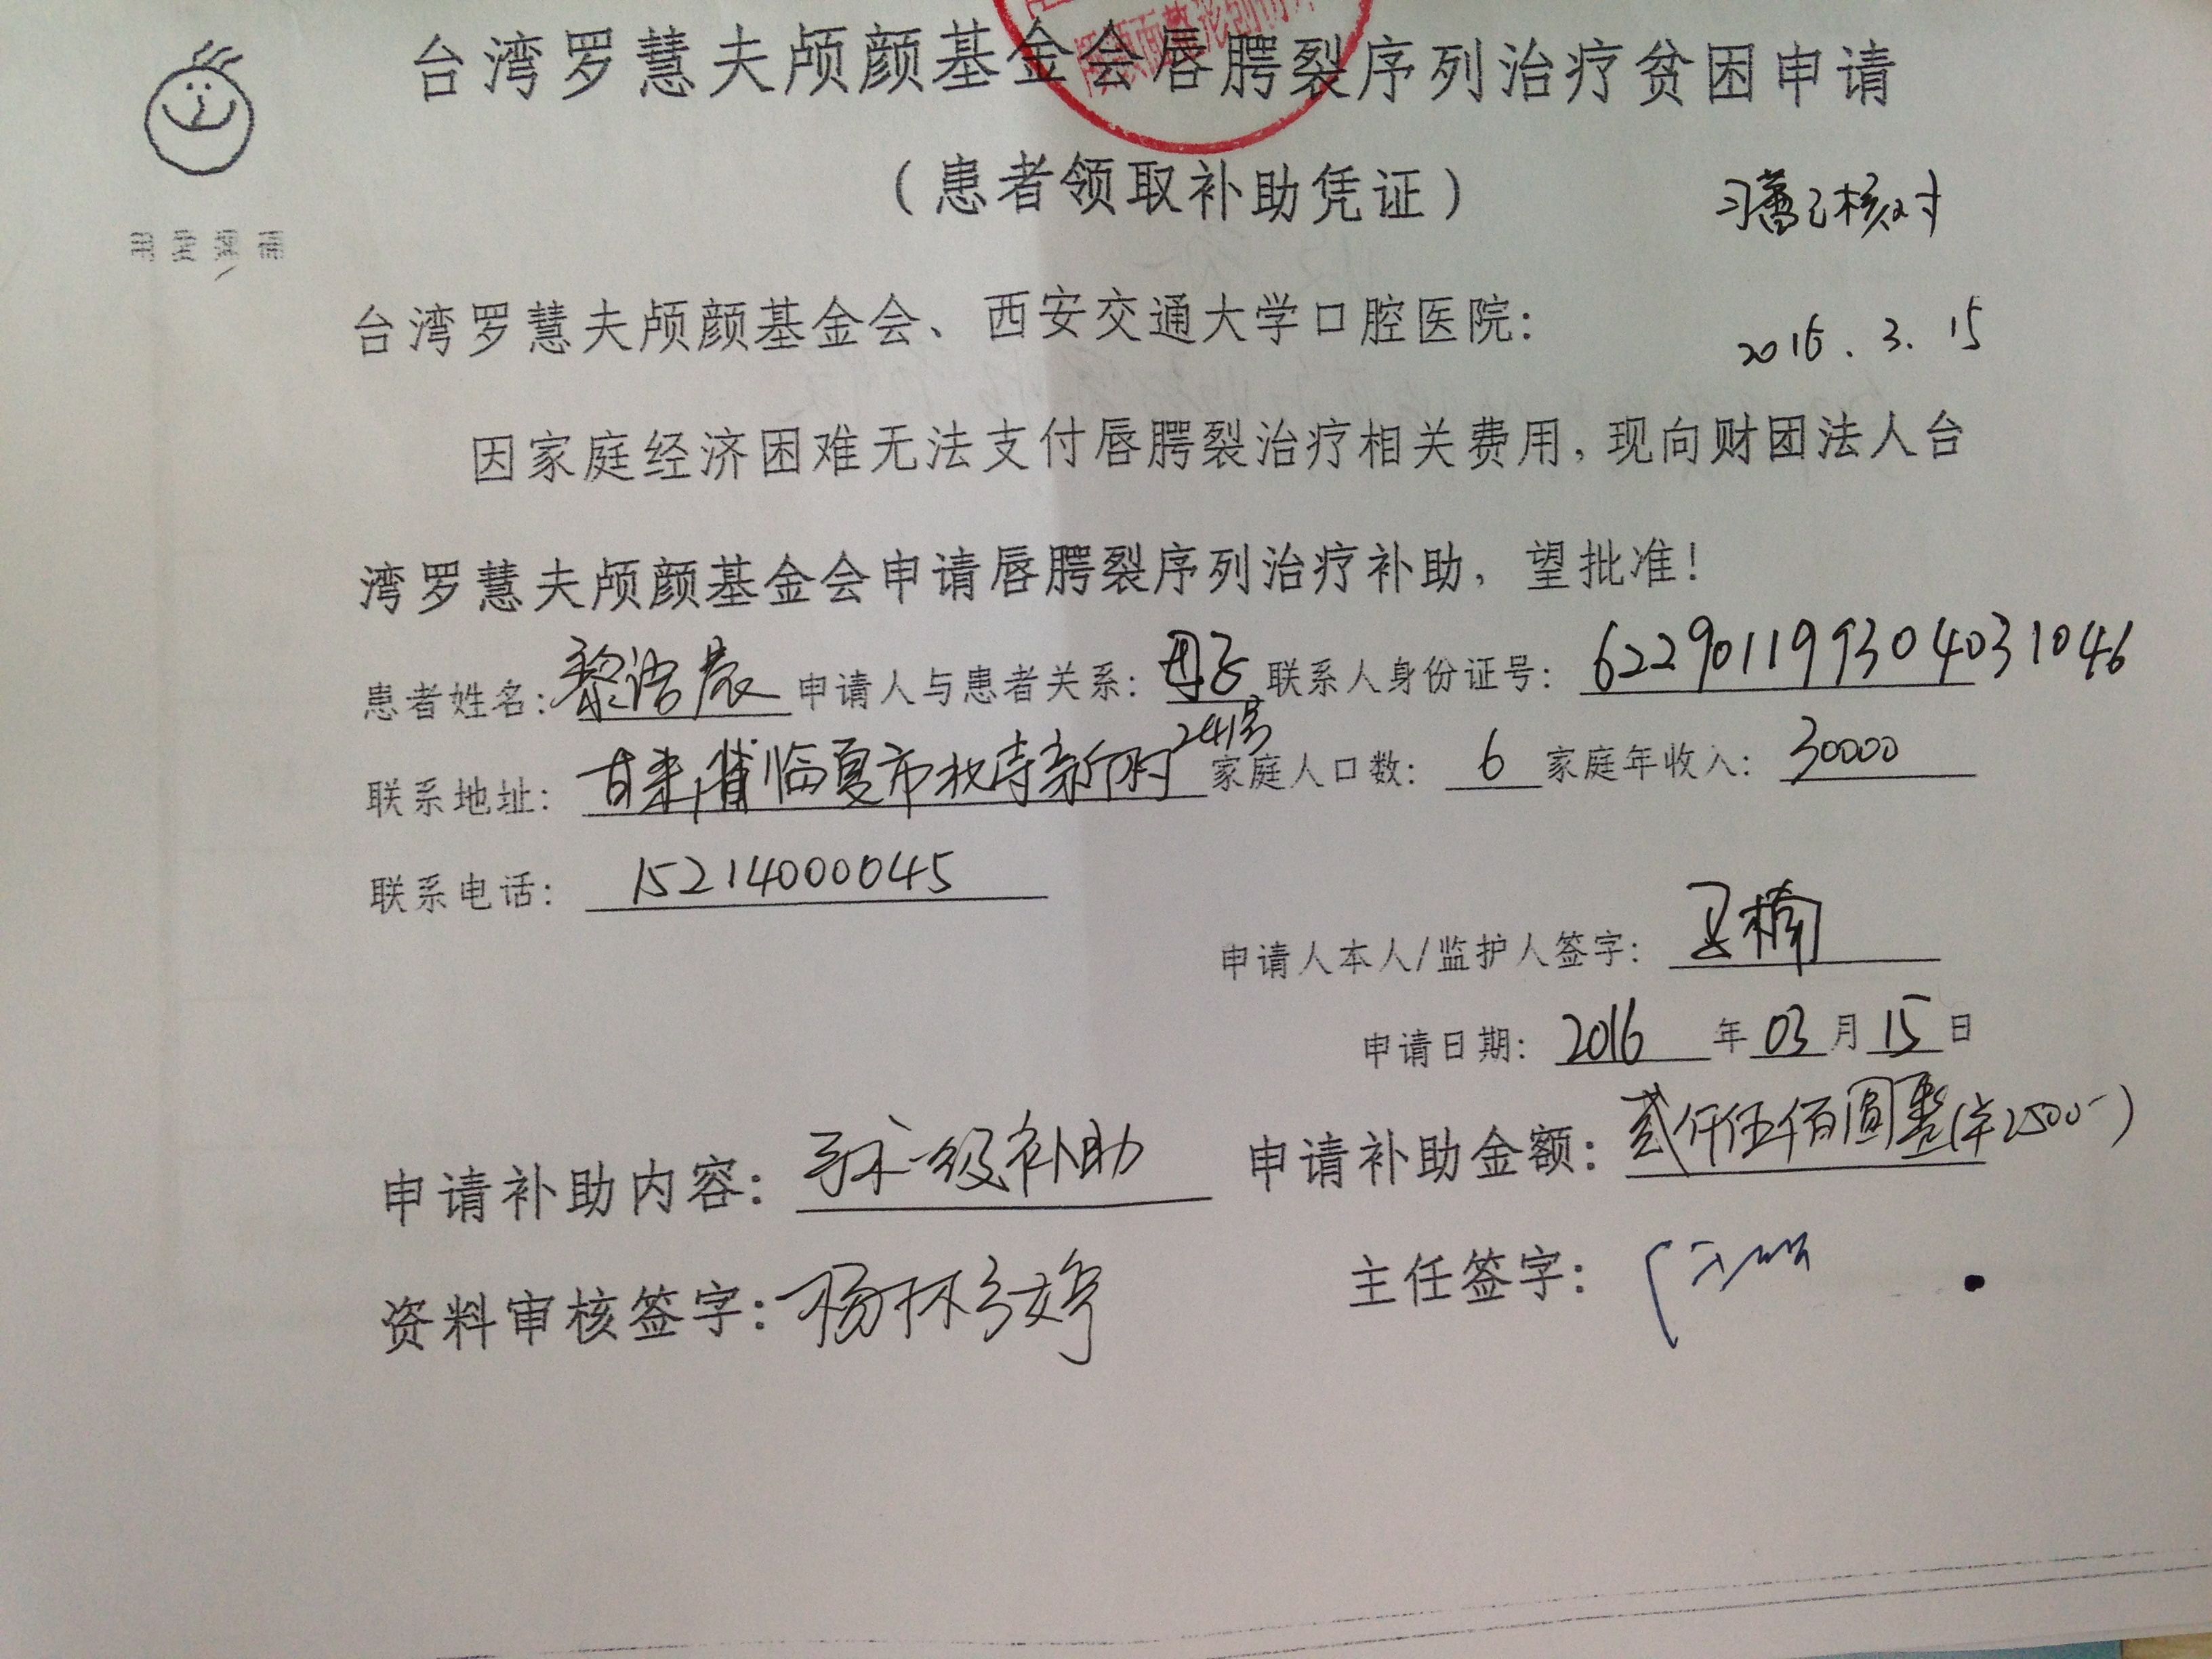 台湾罗慧夫颅颜基金会唇腭裂序列治疗贫困申请
(患者领取补助凭证)
已核对
用爱弥补
台湾罗慧夫颅颜基金会、西安交通大学口腔医院:
2016.3.15
因家庭经济困难无法支付唇腭裂治疗相关费用,现向财团法人台
湾罗慧夫颅颜基金会申请唇腭裂序列治疗补助,望批准!
患者姓名:黎浩宸 申请人与患者关系:母子 联系人身份证号:622901199304031046
联系地址:甘肃省临夏市枹寺新村241号 家庭人口数:6 家庭年收入:30000
联系电话:15214000045
申请人本人/监护人签字:
申请日期:2016年03月15日
申请补助内容:手术一级补助 申请补助金额:贰仟伍佰圆整(¥2500-)
资料审核签字:杨林婷 主任签字: